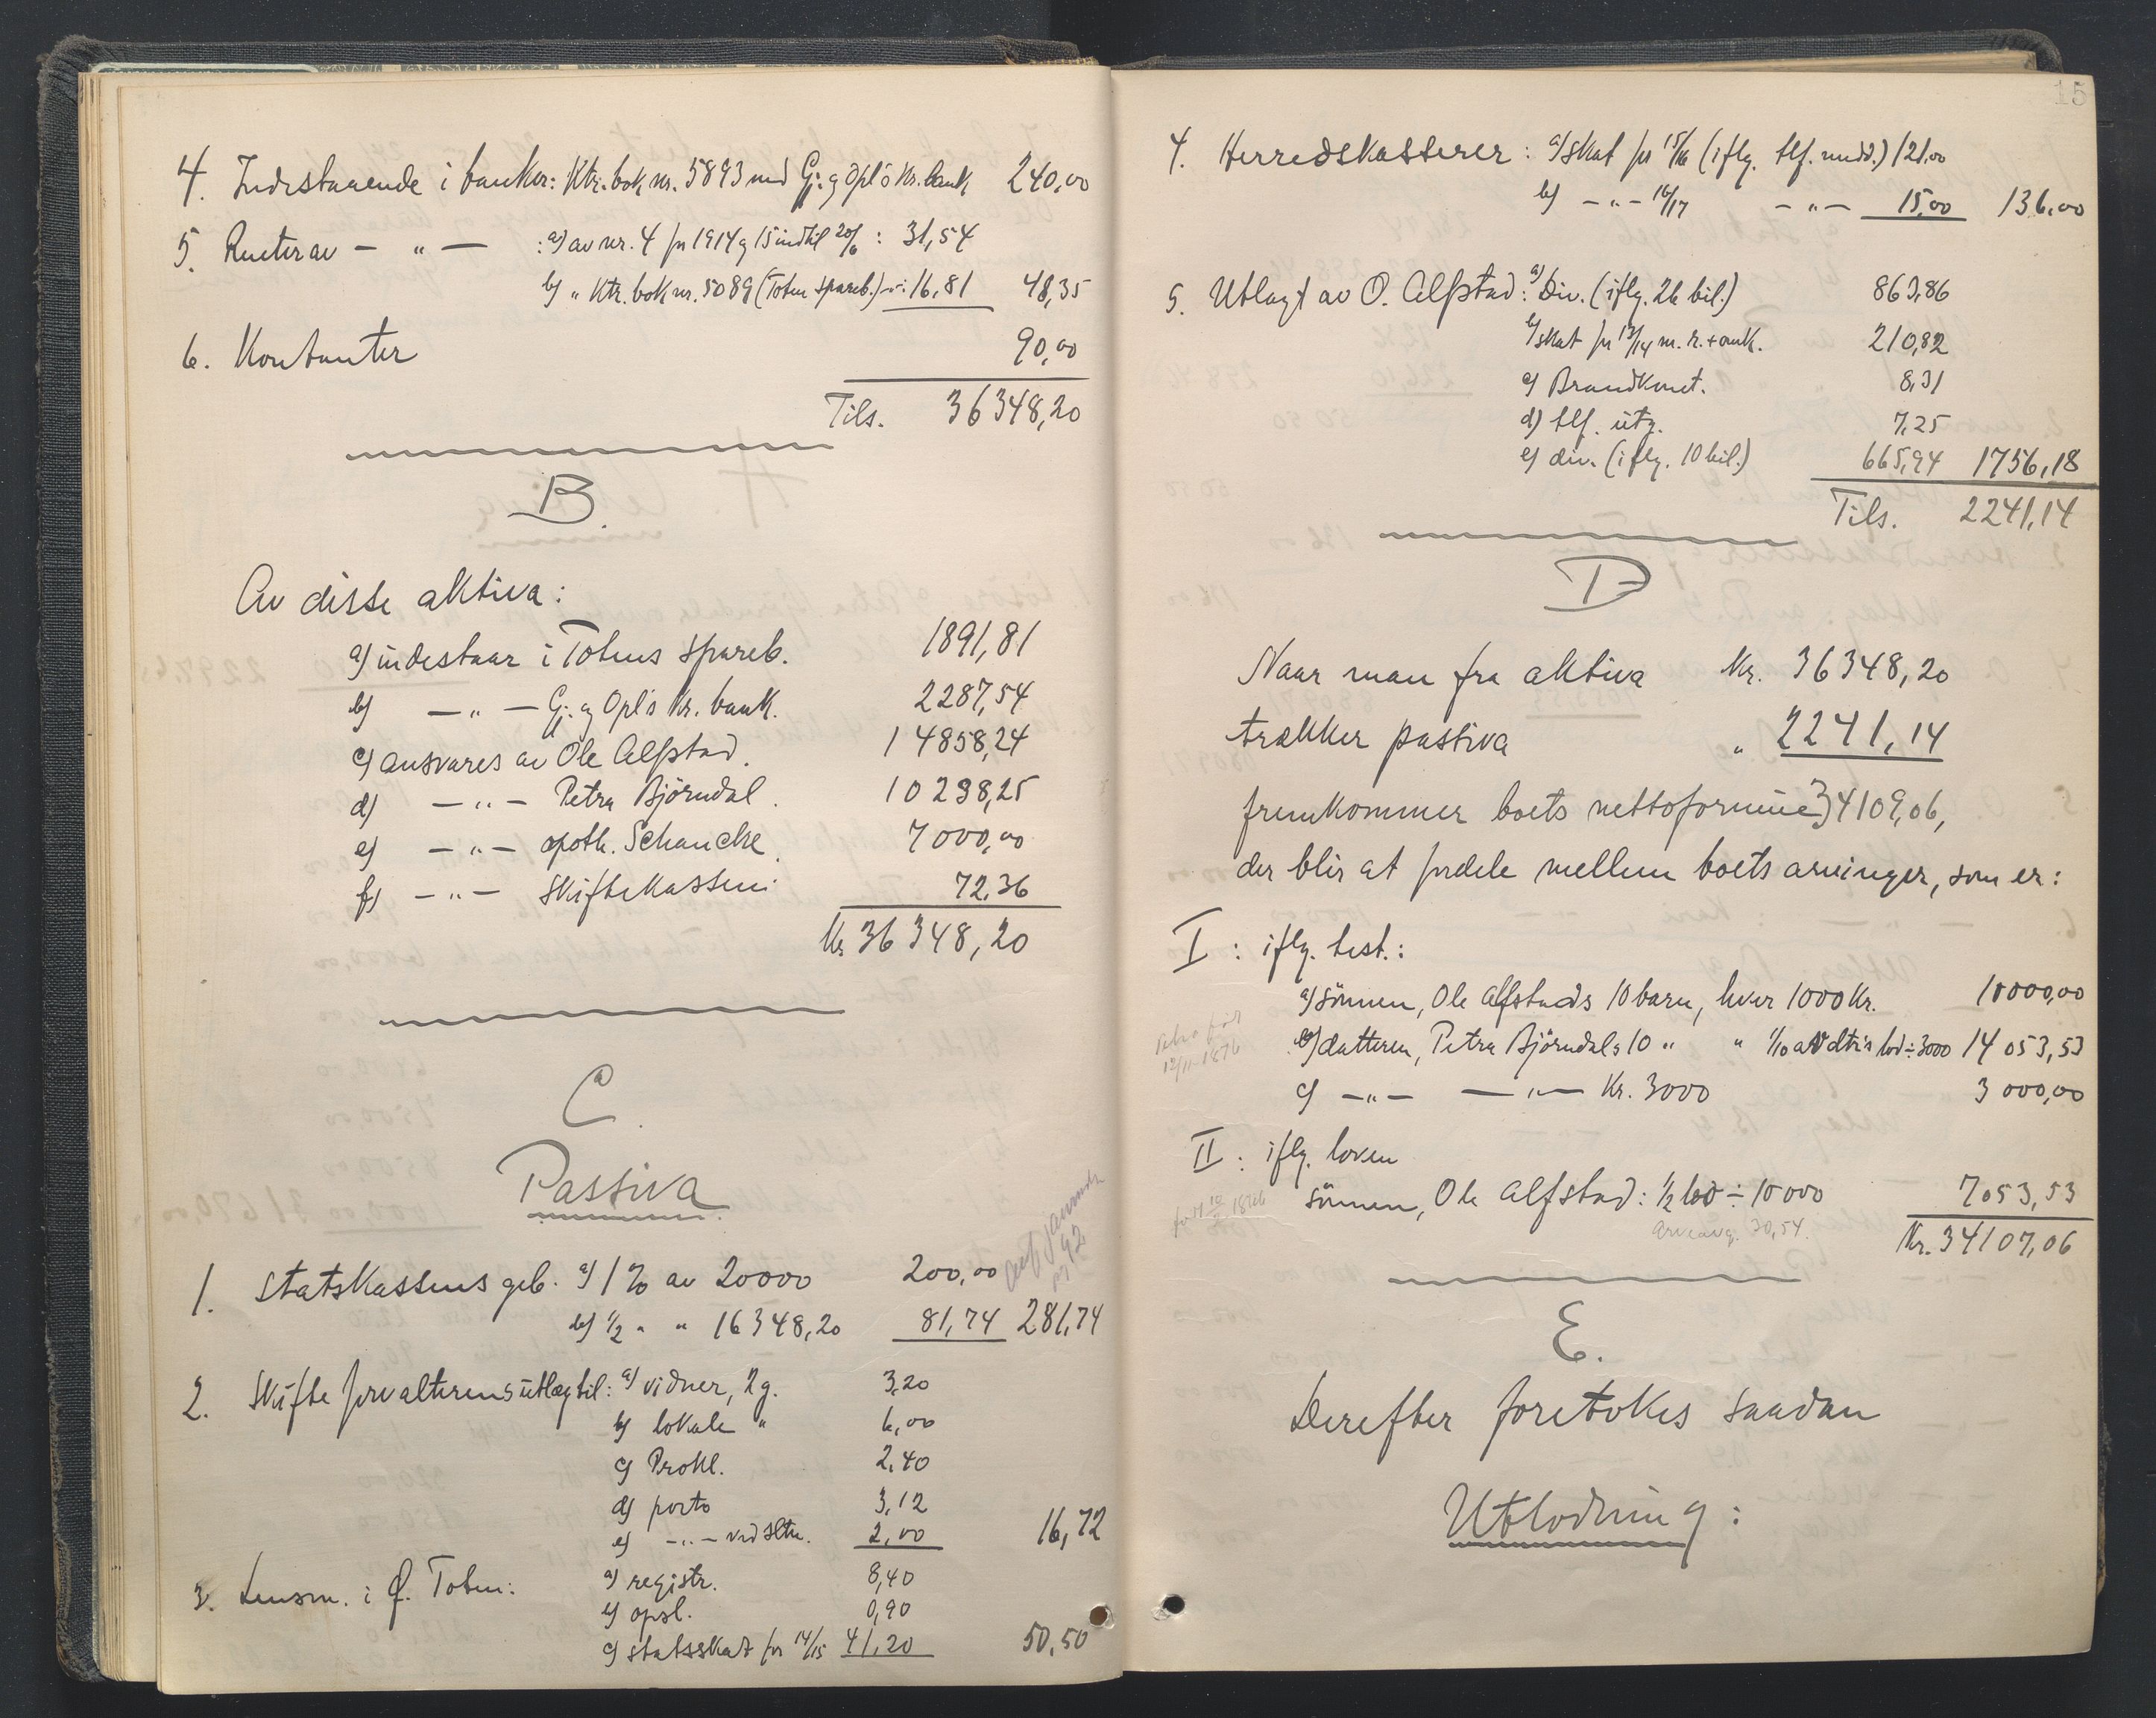 4. Indestaaende i banker: Ktr. bok nr. 5893 med Gj. og Opl's Kr. bank 240,00
5. Renter av — " — : a) av nr. 4 for 1914 og 15 indtil 20/6 : 31,54
b) " Ktr. bok nr. 5089 (Toten spareb.) -"-: 16,81 48,35
6. Kontanter 90,00
Tils. 36348,20
B.
Av disse aktiva:
a) indestaar i Totens spareb. 1891,81
b) — " — Gj. og Opl's Kr. bank. 2287,54
c) ansvares av Ole Alfstad. 14858,24
d) — " — Petra Björndal. 10238,25
e) — " — apoth. Schancke. 7000,00
f) — " — Skiftekassen: 72,36
Kr 36348,20
C.
Passiva
1. Statskassens geb. a) 1 % av 20000 200,00
b) 1/2 " " 16348,20 81,74 281,74
2. Skifteforvalterens utlæg til: a) vidner, 2 g. 3,20
b) lokale " 6,00
c) Prokl. 2,40
d) porto 3,12
e) — " — ved sltn. 2,00 16,72
3. Lensm. i Ø. Toten: a) registr. 8,40
b) opsl. 0,90
c) statsskat for 14/15 41,20 50,50
15
4. Herredskasserer: a) skat for 15/16 (iflg. tlf. medd.) 121,00
b) — " — 16/17 — " — 15,00 136,00
5. Utlagt av O. Alfstad: a) Div. (iflg. 26 bil.) 863,86
b) skat for 13/14 m. r. + omk. 210,82
c) Brandkont. 8,31
d) tlf. utg. 7,25
e) div. (iflg. 10 bil.) 665,94 1756,18
Tils. 2241,14
D
Naar man fra aktiva Kr. 36348,20
trækker passiva " 2241,14
fremkommer boets nettoformue 34109,06,
der blir at fordele mellem boets arvinger, som er:
I : iflg. test.:
a) sönnen, Ole Alfstads 10 barn, hver 1000 Kr. 10000,00
Petra född
12/11-1876
b) datteren, Petra Björndals 10 " " 1/10 av dtr's lod ÷ 3000 14 053,53
c) — " — — " — Kr. 3000 3 000,00
II : iflg. loven
sönnen, Ole Alfstad: 1/2 lod ÷ 10 000 7053,53
Arveavg. 70,54.
Kr. 34107,06
E.
Derefter foretokes saadan
Utlodning: